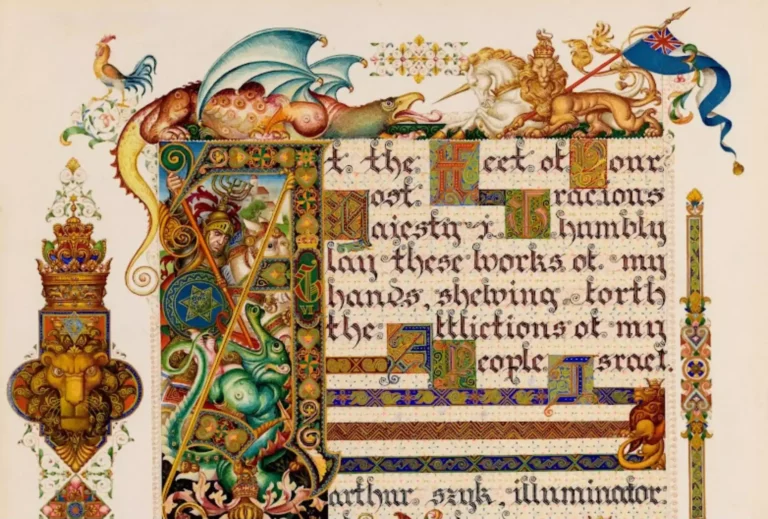 At the Feet of Your
Most Gracious
Majesty I humbly
lay these works of my
hands, shewing forth
the Afflictions of my
People Israel.
arthur szyk, illuminator: